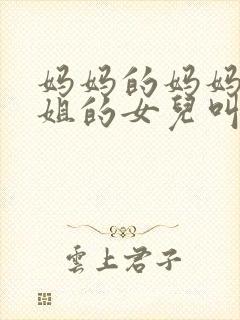 妈妈的妈妈
姐的女兒叫
雲上君子